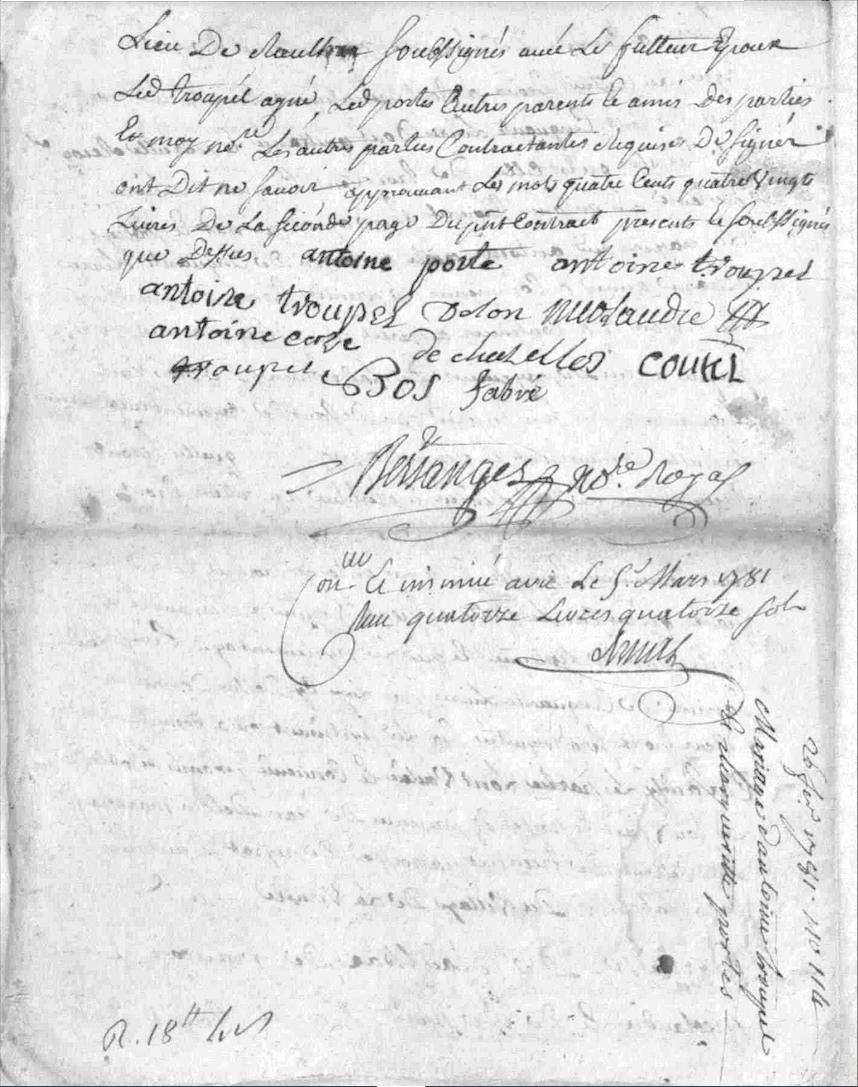 Lieu De soubssignés avec Le futteur Epoux
Led troupél agné, Led portes Euttres parents Et amis Des parties
Et moy no.re Les autres parties Contractantes Requises De signér
ont Dit ne savoir approuvant Les mots quatre Cents quatre Vingts
Livres De La seconde page Du pnt Contract presents Le soubssignés
que Dessus antoine porte antoine troupel
antoire troupel Delon
antoine de chazelles
troupel Bos fabre
Bessanges no.re Royal
Con.lle Et insinué avec Le 5.e Mars 1781
Reçu quatorze Livres quatorze sols
26 fev.r 1781. N.o 114
Mariage d'antoine troupel
Et Marguerite portes
R. 18tt